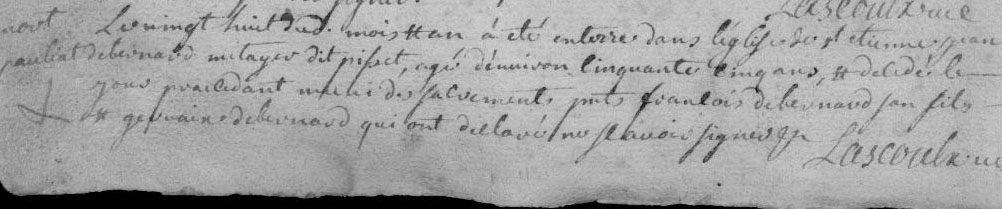 Lascoulx vic
mort Le vingt huit dud. mois et an à été enterré dans l'église de st etienne jean
debernard metayer dit pisset, agé d'environ cinquante cinq ans, et decedé le
jour precedant muni des sacrements pnts francois debernard son fils
et germain debernard qui ont declaré ne sçavoir signer
Lascoulx vic